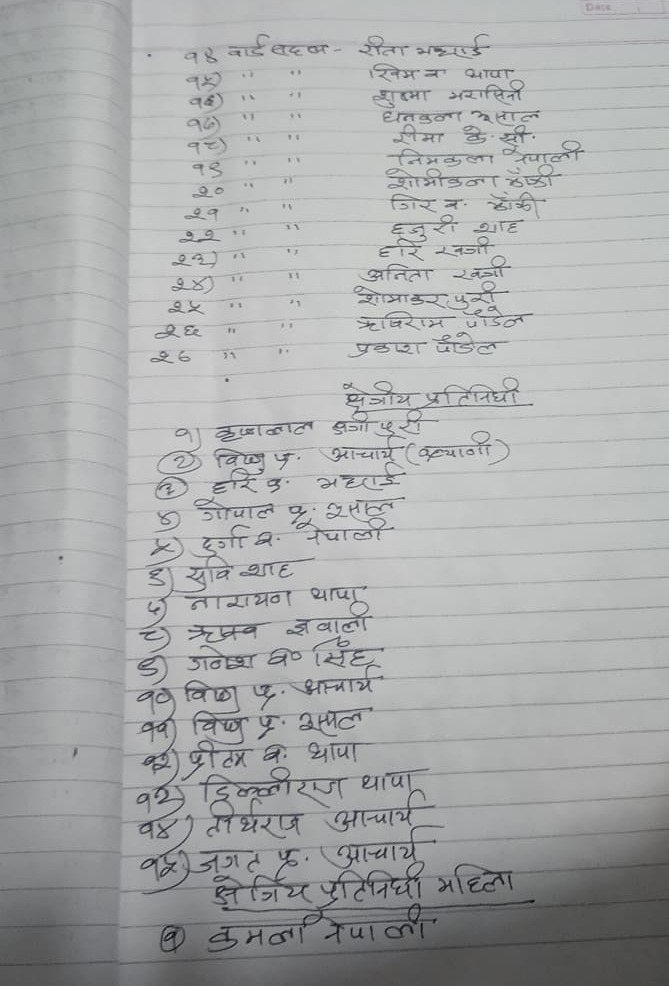 Date
१४ वार्ड सदस्य - रीता भट्टराई
१५) " " खिम ब थापा
१६) " " सुष्मा मरासिनी
१७) " " धनकला रसाल
१८) " " रीमा के. सी.
१९ " " निमकला नेपाली
२० " " शोभीकला
२१ " " गिर ब.
२२ " " हजुरी शाह
२३) " " हरि खत्री
२४) " " अनिता खत्री
२५ " " शोभाकर पुरी
२६ " " ऋषिराम पौडेल
२७ " " प्रकाश पौडेल
क्षेत्रीय प्रतिनिधी
१) कृष्णलाल पुरी
२) विष्णु प्र. आचार्य (कल्याणी)
३) हरि प्र. भट्टराई
४) गोपाल प्र. रसाल
५) दुर्गा ब. नेपाली
६) सुवि शाह
७) नारायण थापा
८) ऋषव ज्ञवाली
९) गणेश ब० सिंह
१०) विष्णु प्र. आचार्य
११) विष्णु प्र. रसाल
१२) प्रीतम ब. थापा
१३) डिल्लीराज थापा
१४) तीर्थराज आचार्य
१५) जगत प्र. आचार्य
क्षेत्रिय प्रतिनिधी महिला
१) कमला नेपाली